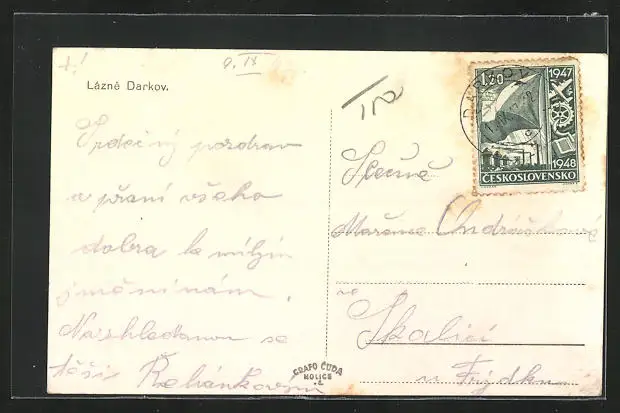 9. IX
Lázně Darkov.
Srdečný pozdrav
a přaní všeho
dobra k milým
jmeninám.
Nashledanou se
těší Řehánkovi
GRAFO ČUDA
HOLICE
1.20
1947
1948
ČESKOSLOVENSKO
Slečně
Mařence Ondráškové
Skalici
u Frýdku